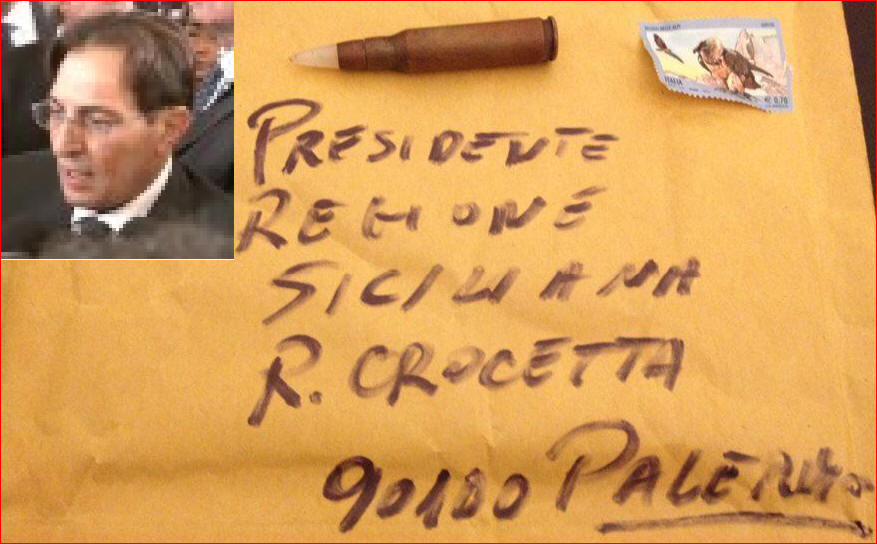 ITALIA
€ 0,70
PRESIDENTE
REGIONE
SICILIANA
R. CROCETTA
90100 PALERMO